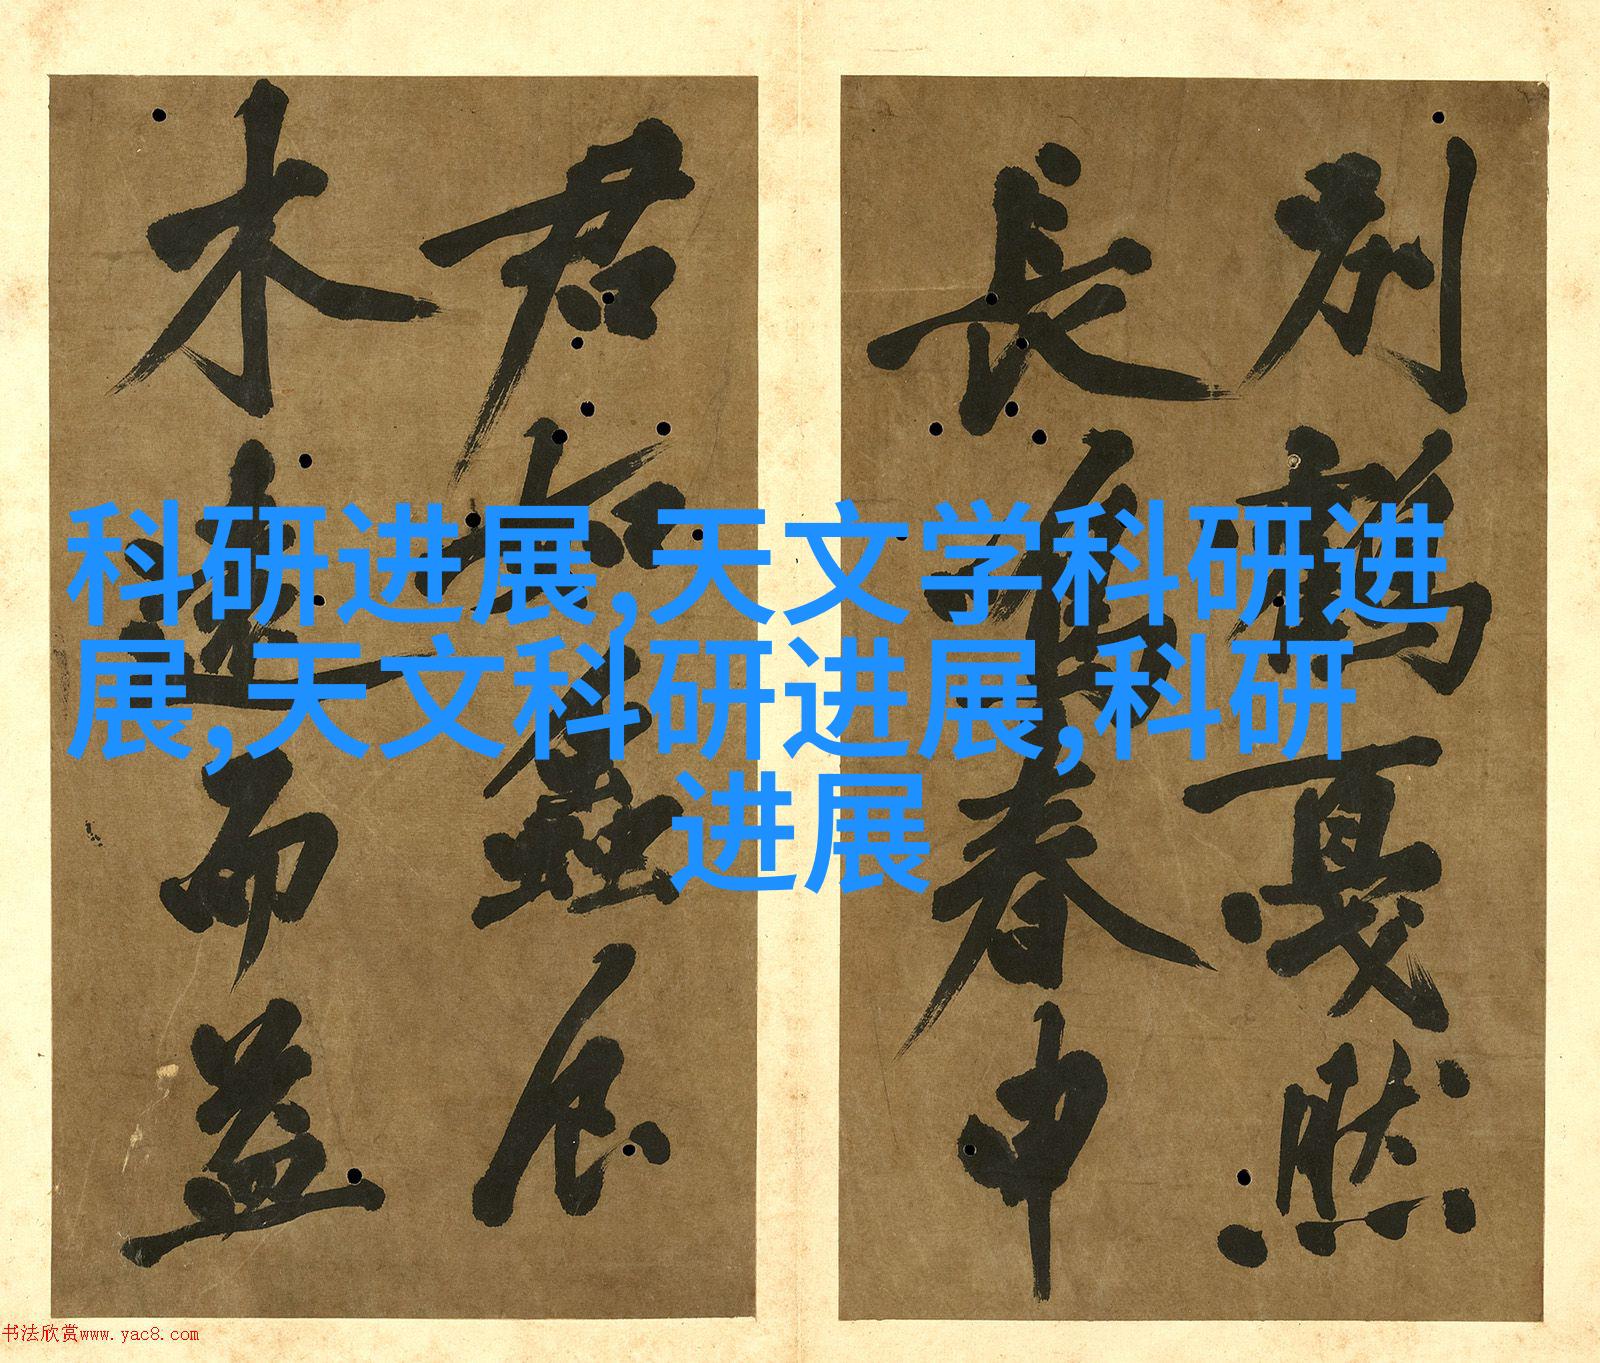 科研进展,天文学科研进
展,天文科研进展,科研
进展
別鶴戛然
長春申
君
木而益
书法欣赏www.yac8.com